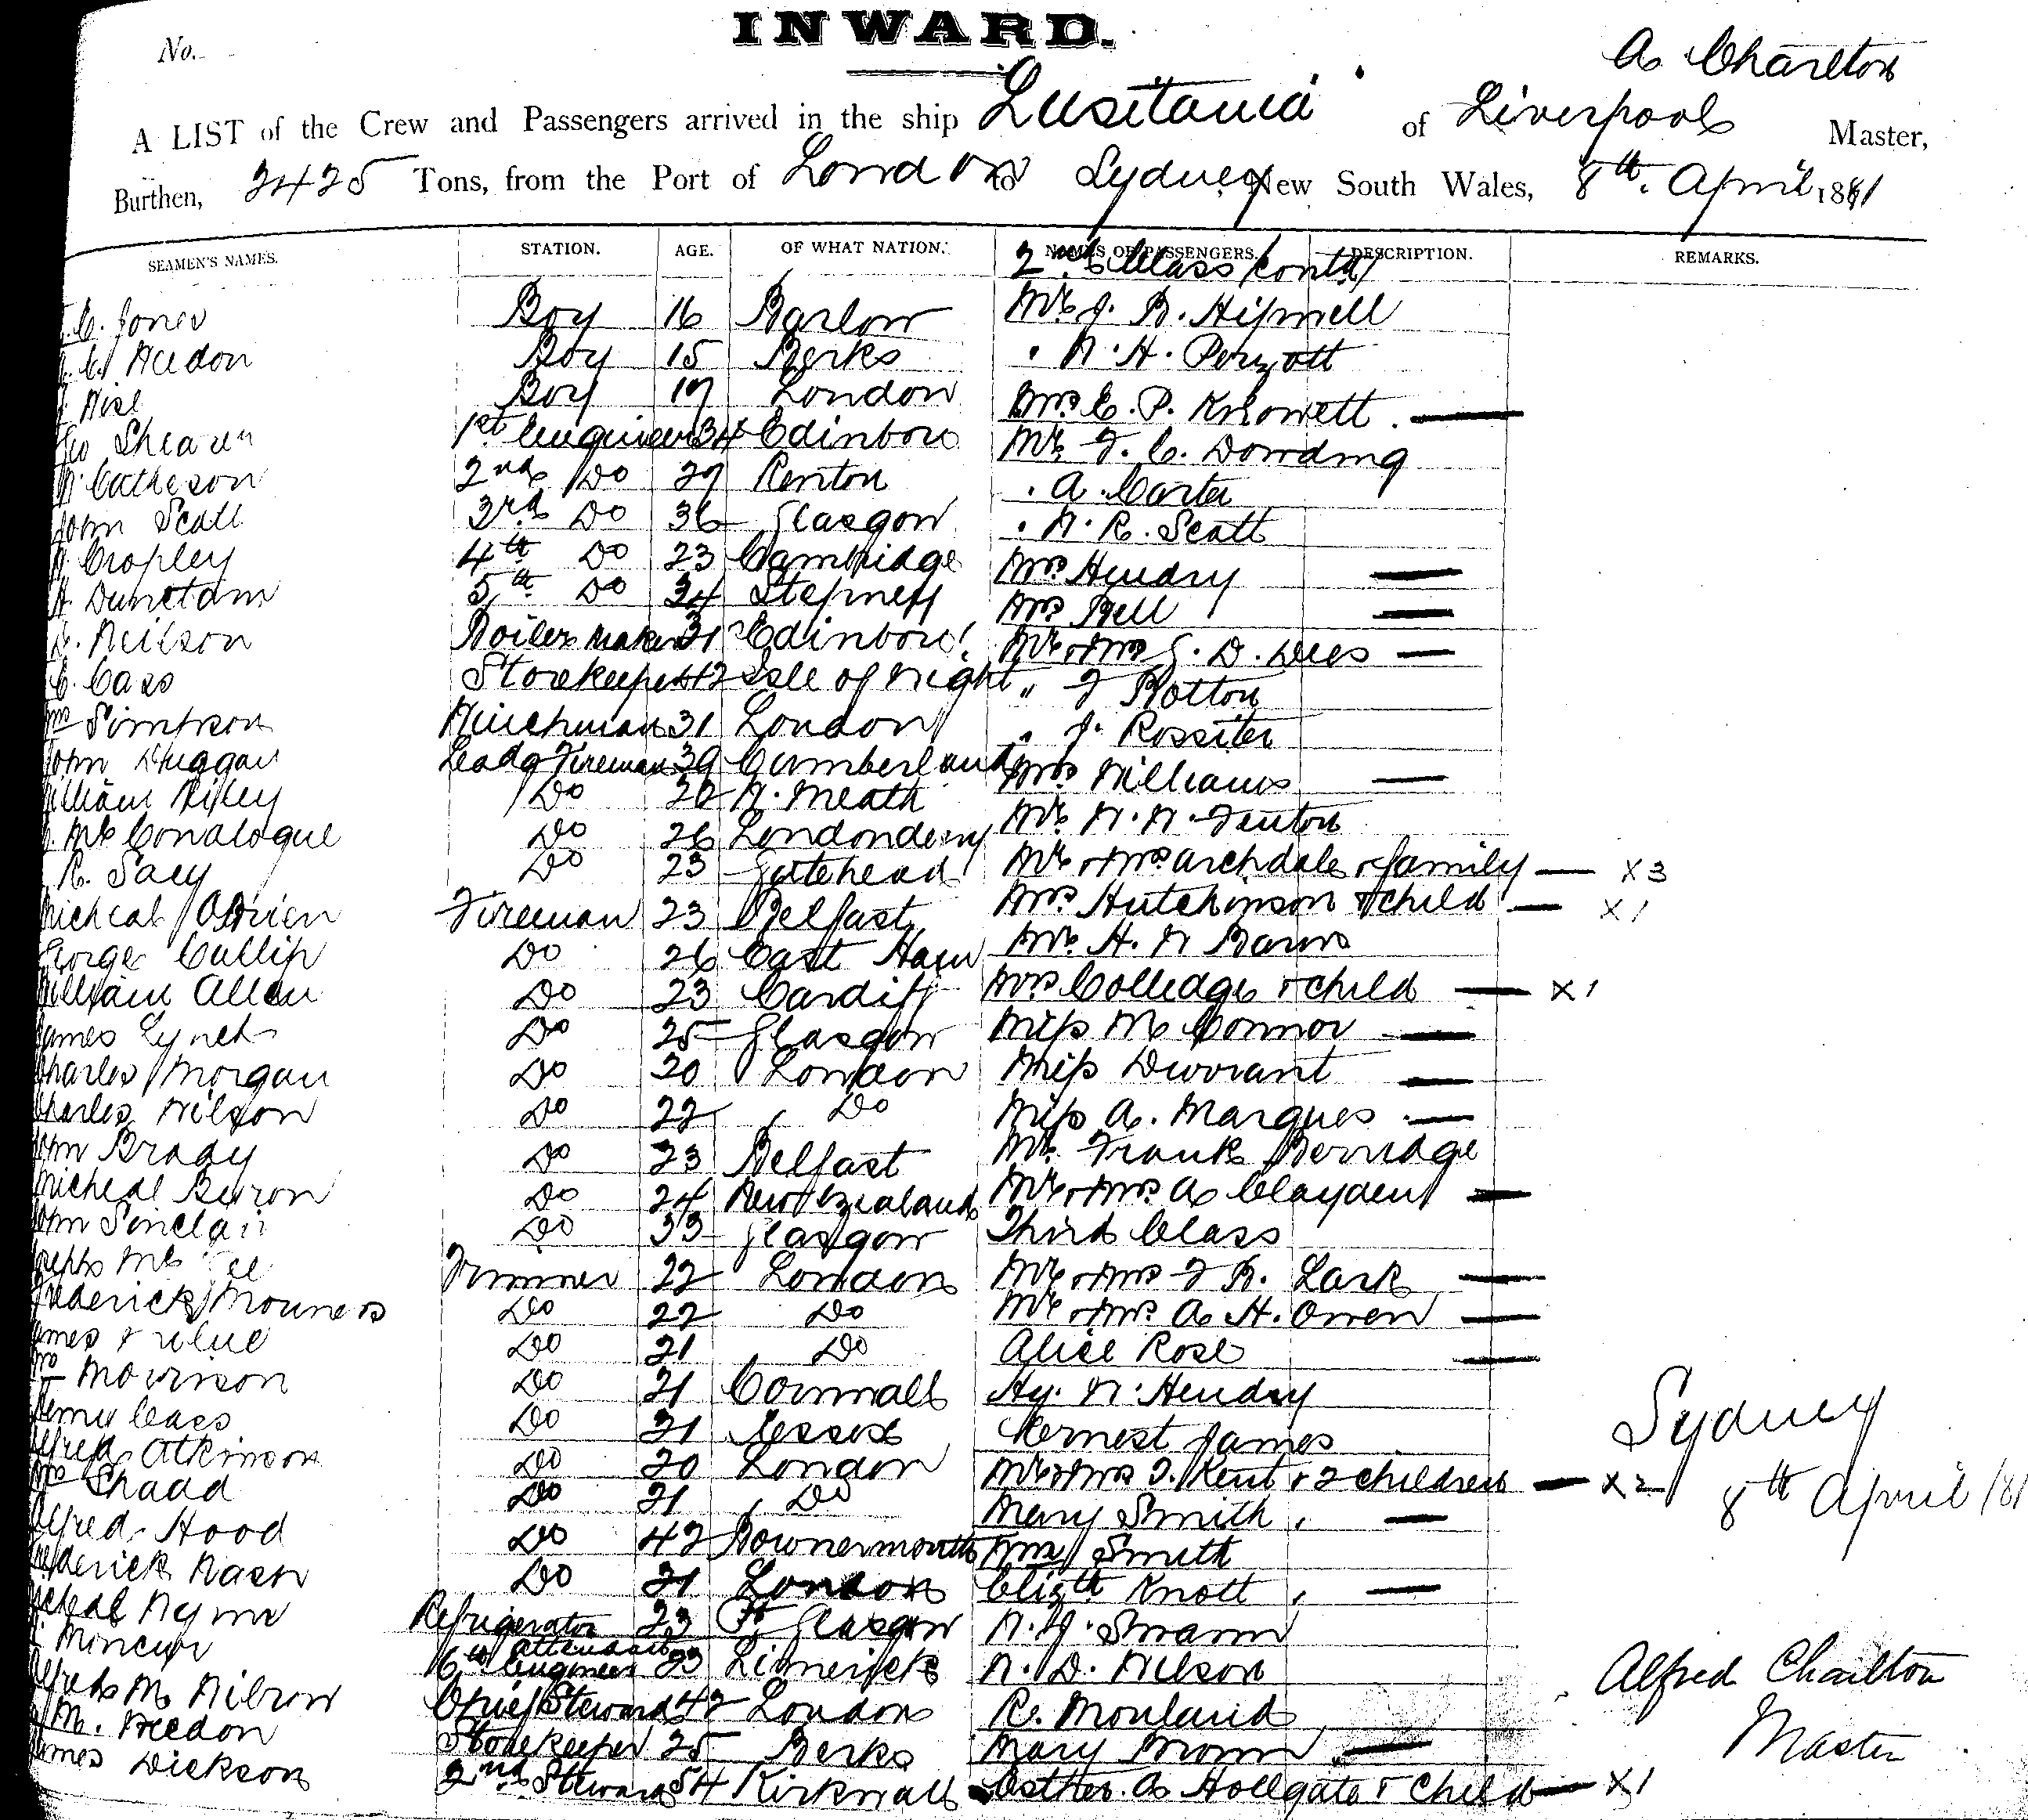 INWARD.
No.
A Charlton
A LIST of the Crew and Passengers arrived in the ship Lusitania of Liverpool Master,
Burthen, 2425 Tons, from the Port of London to Sydney, New South Wales, 8th April 1881
SEAMEN'S NAMES. STATION. AGE. OF WHAT NATION. NAMES OF PASSENGERS. DESCRIPTION. REMARKS.
2nd Class contd/
C. Jones Boy 16 Barlow Mr J. B. Hipwell
Boy 15 Berks " W. H. Perrott
Boy London Mrs C. P. Knowett
Shearer 1st Engineer 34 Edinboro Mr F. C. Dowding
Catheson 2nd Do 27 Renton " A. Carter
John Scott 3rd Do 36 Glasgow " W. R. Scott
Cropley 4th Do 23 Cambridge Mrs Hendry
H. Dunstan 5th Do 34 Stepney Mrs Bell
Neilson Boiler Maker 31 Edinboro' Mr & Mrs D. Dees
C. Cass Storekeeper 42 Isle of Wight " F Botton
Wm Simpson Winchman 31 London " J. Rossiter
John Duggan Leadg Fireman 39 Cumberland Mrs Williams
William Riley Do W. Meath Mr W. W. Fenton
McConalogue Do 26 Londonderry Mr & Mrs Archdale & family X3
R. Sacy Do 23 Gatehead Mrs Hutchinson & child X1
Micheal O'Brien Fireman 23 Belfast Mr H. W Barns
George Cullip Do 26 East Ham Mrs Colledge & child X1
William Allen Do 23 Cardiff Miss McConnor
James Lynch Do 25 Glasgow Miss Durrant
Charles Morgan Do 20 London Miss A. Marques
Charles Wilson Do 22 Do Mr Frank Berridge
John Brady Do 23 Belfast Mr & Mrs A Clayden
Micheal Byron Do 24 New Zealand Third Class
John Sinclair Do 33 Glasgow Mr & Mrs F B. Lark
Joseph Mc Trimmer 22 London Mr & Mrs A H. Owen
Frederick Mouners Do 22 Do Alice Rose
James Do 21 Do Hy. W. Hendry
Wm Morrison Do 21 Cornwall Ernest James
Henry Cass Do 21 Essex Mr & Mrs J. Kent & 2 children X2
Alfred Atkinson Do 20 London Mary Smith
Wm Shadd Do 21 Do Wm Smith
Alfred Hood Do 42 Bournemouth Elizth Knott
Frederick Nash Do 21 London W. J. Swann
Micheal Refrigerator attendant 23 Pt Glasgow W. D. Wilson
Moncur 6th Engineer 23 Limerick R. Mouland
Alfred M. Wilson Chief Steward 42 London Mary Brown
M. Weedon Storekeeper 25 Berks Esther A Hollgate & Child X1
James Dickson 2nd Steward 54 Kirkwall
Sydney
8th April /81
Alfred Charlton
Master